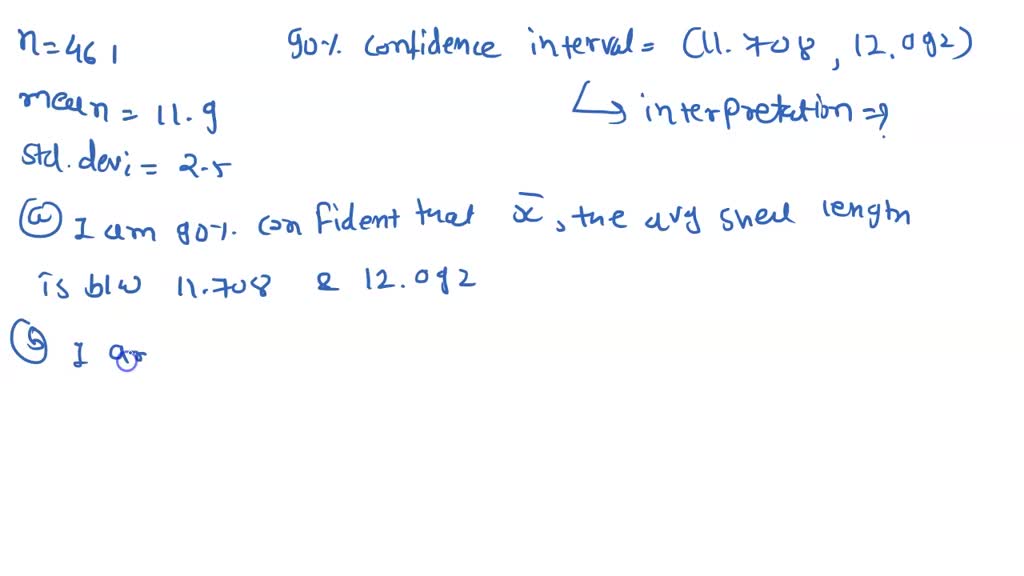 n=461 90% confidence interval = (11.708, 12.092)
mean = 11.9 ↳ interpretation =?
std.devi = 2.5
ⓐ I am 90% confident that x̄, the avg shell length
is b/w 11.708 & 12.092
ⓑ I am